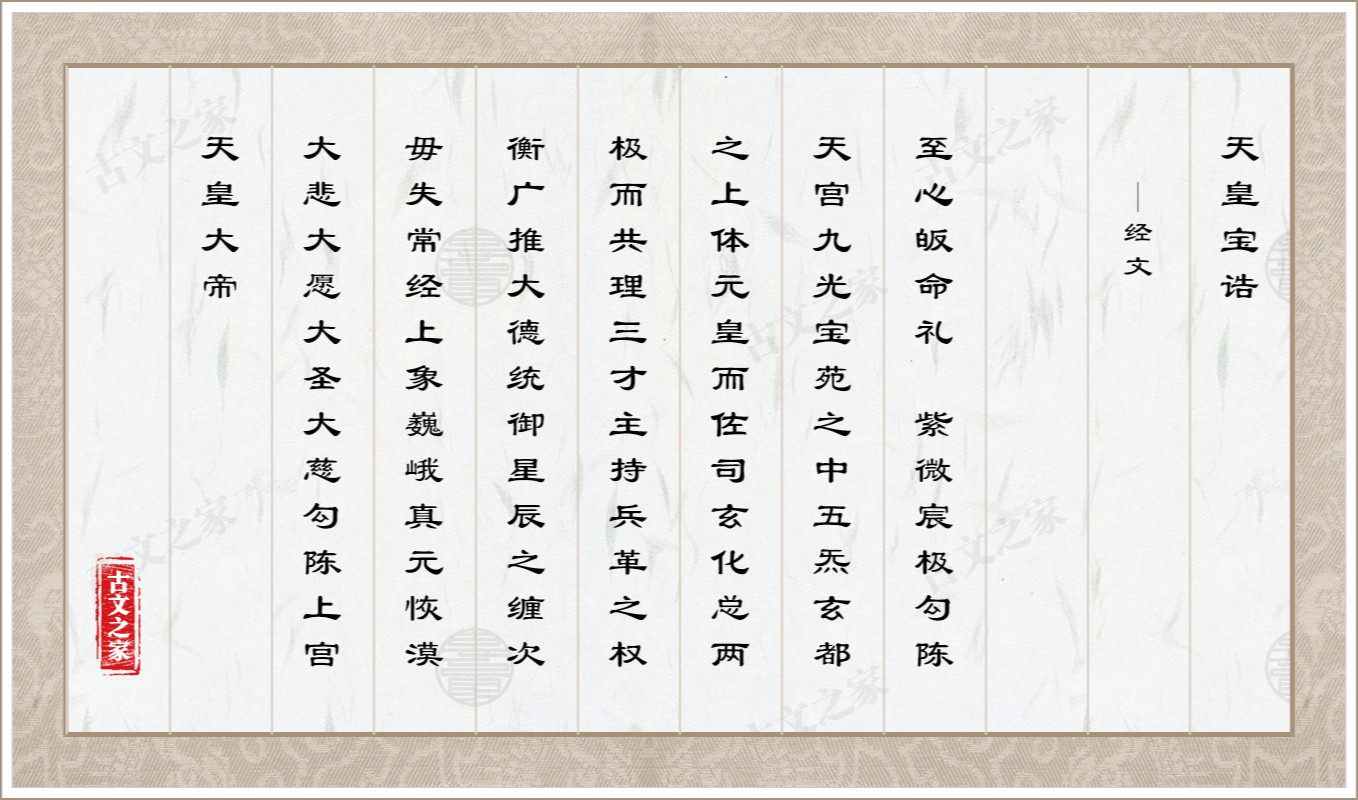 天皇宝诰
—经文
至心皈命礼　紫微宸极勾陈
天宫九光宝苑之中五炁玄都
之上体元皇而佐司玄化总两
极而共理三才主持兵革之权
衡广推大德统御星辰之缠次
毋失常经上象巍峨真元恢漠
大悲大愿大圣大慈勾陈上宫
天皇大帝
古文之家